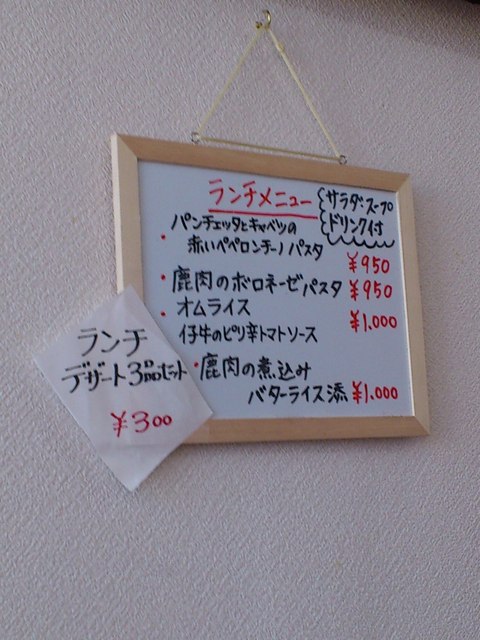 ランチメニュー
サラダ・スープ
ドリンク付
・パンチェッタとキャベツの
赤いペペロンチーノパスタ
¥950
・鹿肉のボロネーゼパスタ ¥950
・オムライス
仔牛のピリ辛トマトソース
¥1.000
・鹿肉の煮込み
バターライス添 ¥1.000
ランチ
デザート3品セット
¥300